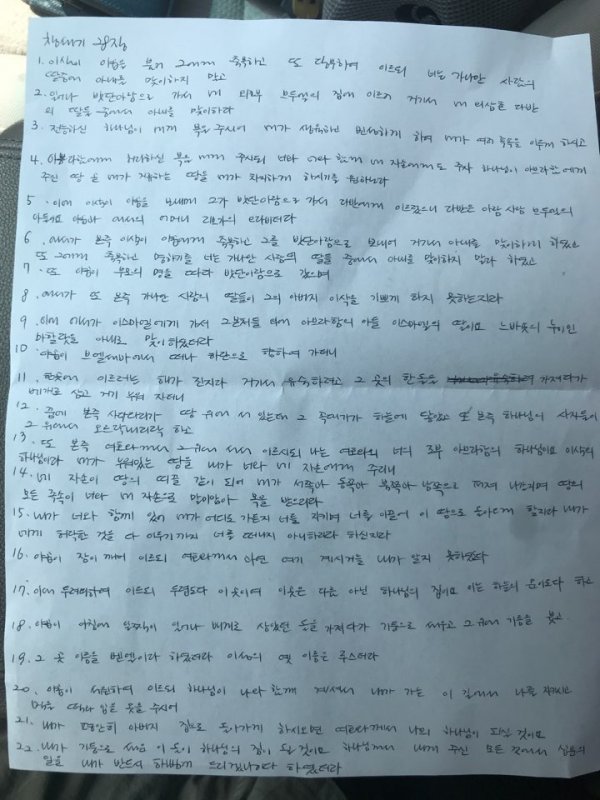 창세기 28장
1. 이삭이 야곱을 불러 그에게 축복하고 또 당부하여 이르되 너는 가나안 사람의
딸들중에 아내를 맞이하지 말고
2. 일어나 밧단아람으로 가서 네 외조부 브두엘의 집에 이르러 거기서 네 외삼촌 라반
의 딸들 중에서 아내를 맞이하라
3. 전능하신 하나님이 네게 복을 주시어 네가 생육하고 번성하게 하여 네가 여러 족속을 이루게 하시고
4. 아브라함에게 허락하신 복을 네게 주시되 너와 너와 함께 네 자손에게도 주사 하나님이 아브라함에게
주신 땅 곧 네가 거류하는 땅을 네가 차지하게 하시기를 원하노라
5. 이에 이삭이 야곱을 보내매 그가 밧단아람으로 가서 라반에게 이르렀으니 라반은 아람 사람 브두엘의
아들이요 야곱과 에서의 어머니 리브가의 오라비더라
6. 에서가 본즉 이삭이 야곱에게 축복하고 그를 밧단아람으로 보내어 거기서 아내를 맞이하게 하였고
또 그에게 축복하고 명하기를 너는 가나안 사람의 딸들 중에서 아내를 맞이하지 말라 하였고
7. 또 야곱이 부모의 명을 따라 밧단아람으로 갔으며
8. 에서가 또 본즉 가나안 사람의 딸들이 그의 아버지 이삭을 기쁘게 하지 못하는지라
9. 이에 에서가 이스마엘에게 가서 그 본처들 외에 아브라함의 아들 이스마엘의 딸이요 느바욧의 누이인
마할랏을 아내로 맞이하였더라
10. 야곱이 브엘세바에서 떠나 하란으로 향하여 가더니
11. 한곳에 이르러는 해가 진지라 거기서 유숙하려고 그 곳의 한 돌을 가져다가
베개로 삼고 거기 누워 자더니
12. 꿈에 본즉 사닥다리가 땅 위에 서 있는데 그 꼭대기가 하늘에 닿았고 또 본즉 하나님의 사자들이
그 위에서 오르락내리락 하고
13. 또 본즉 여호와께서 그 위에 서서 이르시되 나는 여호와니 너의 조부 아브라함의 하나님이요 이삭의
하나님이라 네가 누워있는 땅을 내가 너와 네 자손에게 주리니
14. 네 자손이 땅의 티끌 같이 되어 네가 서쪽과 동쪽과 북쪽과 남쪽으로 퍼져 나갈지며 땅의
모든 족속이 너와 네 자손으로 말미암아 복을 받으리라
15. 내가 너와 함께 있어 네가 어디로 가든지 너를 지키며 너를 이끌어 이 땅으로 돌아오게 할지라 내가
네게 허락한 것을 다 이루기까지 너를 떠나지 아니하리라 하신지라
16. 야곱이 잠이 깨어 이르되 여호와께서 과연 여기 계시거늘 내가 알지 못하였도다
17. 이에 두려워하여 이르되 두렵도다 이곳이여 이것은 다름 아닌 하나님의 집이요 이는 하늘의 문이로다 하고
18. 야곱이 아침에 일찍이 일어나 베개로 삼았던 돌을 가져다가 기둥으로 세우고 그 위에 기름을 붓고
19. 그 곳 이름을 벧엘이라 하였더라 이 성의 옛 이름은 루스더라
20. 야곱이 서원하여 이르되 하나님이 나와 함께 계셔서 내가 가는 이 길에서 나를 지키시고
먹을 떡과 입을 옷을 주시어
21. 내가 평안히 아버지 집으로 돌아가게 하시오면 여호와께서 나의 하나님이 되실 것이요
22. 내가 기둥으로 세운 이 돌이 하나님의 집이 될 것이요 하나님께서 내게 주신 모든 것에서 십분의
일을 내가 반드시 하나님께 드리겠나이다 하였더라